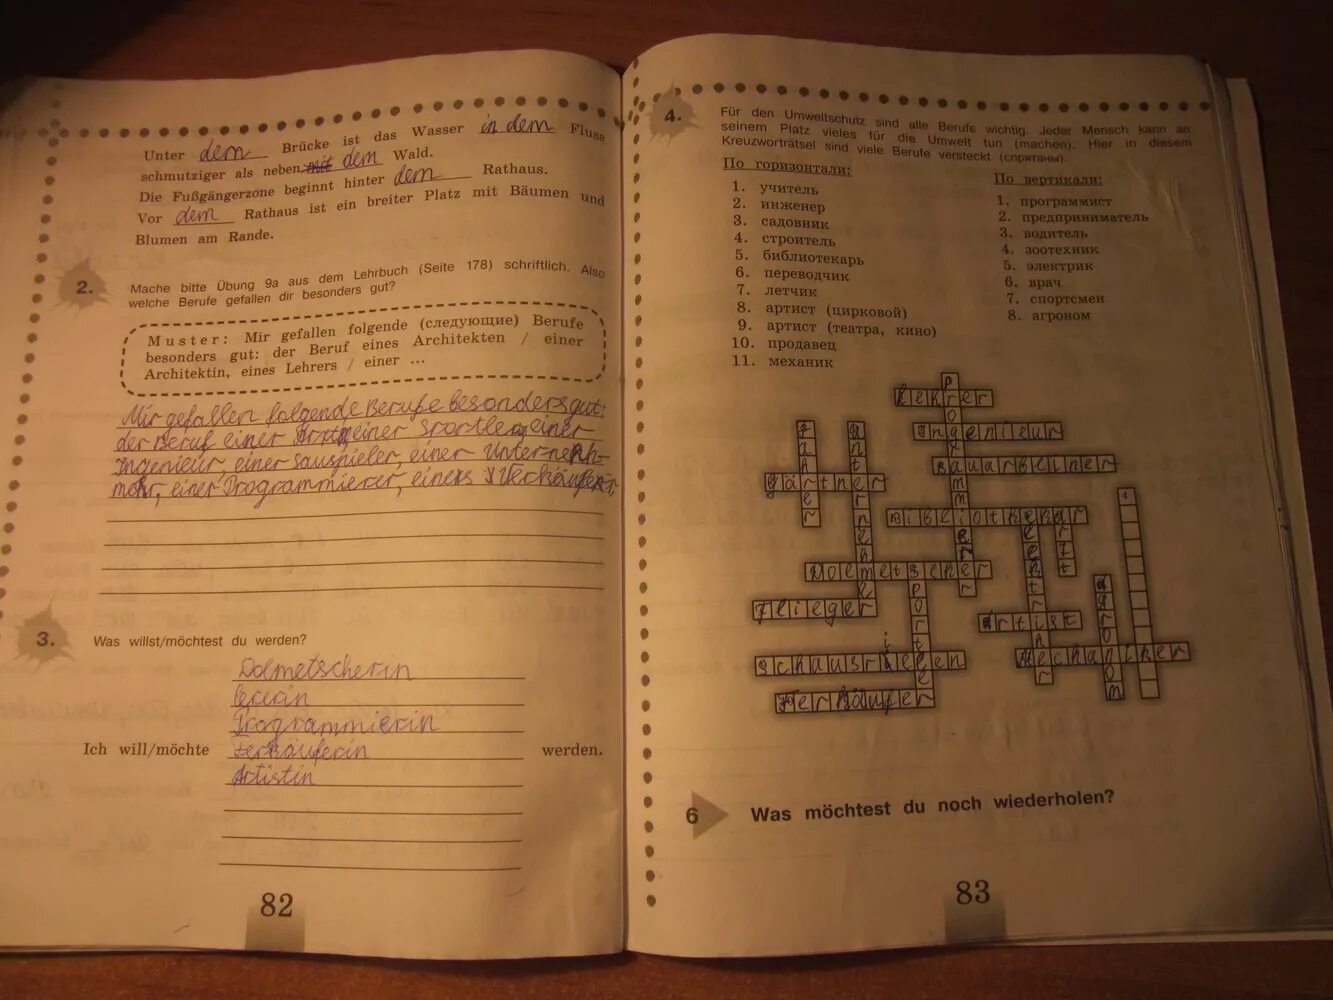 Unter dem Brücke ist das Wasser in dem Fluss
schmutziger als neben mit dem Wald.
Die Fußgängerzone beginnt hinter dem Rathaus.
Vor dem Rathaus ist ein breiter Platz mit Bäumen und
Blumen am Rande.
2. Mache bitte Übung 9a aus dem Lehrbuch (Seite 178) schriftlich. Also
welche Berufe gefallen dir besonders gut?
Muster: Mir gefallen folgende (следующие) Berufe
besonders gut: der Beruf eines Architekten / einer
Architektin, eines Lehrers / einer ...
Mir gefallen folgende Berufe besonders gut:
der Beruf einer einer Sportler, einer
Ingenieur, einer Sauspieler, einer Unterneh-
einer Programmierer, eines
3. Was willst/möchtest du werden?
Dolmetscherin
Programmierin
Ich will/möchte Ferkäuferin werden.
Artistin
82
4. Für den Umweltschutz sind alle Berufe wichtig. Jeder Mensch kann an
seinem Platz vieles für die Umwelt tun (machen). Hier in diesem
Kreuzworträtsel sind viele Berufe versteckt (спрятаны).
По горизонтали:
1. учитель
2. инженер
3. садовник
4. строитель
5. библиотекарь
6. переводчик
7. летчик
8. артист (цирковой)
9. артист (театра, кино)
10. продавец
11. механик
По вертикали:
1. программист
2. предприниматель
3. водитель
4. зоотехник
5. электрик
6. врач
7. спортсмен
8. агроном
Ingenieur
Bauarbeiner
Gärtner
Bibliothekar
Dolmetscher
Flieger
Artist
Schauspielen
Mechaniker
Ferkäufer
6 Was möchtest du noch wiederholen?
83